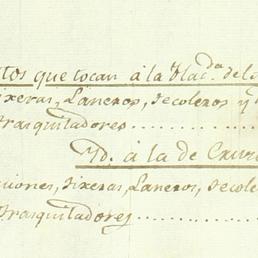 tos que tocan â la Hac.da de la
ixeras, Laneros, Recoleros y
Trasquiladores ..........
Yd. â la de Cruz
ciones, Tixeras, Laneros, Recole
Trasquiladores ..........